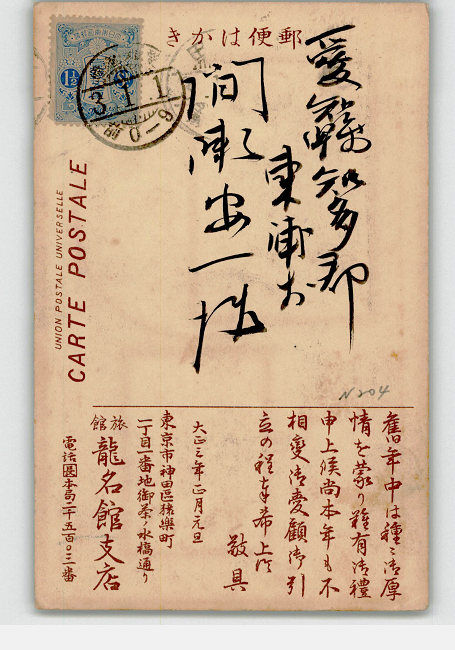 郵便はがき
UNION POSTALE UNIVERSELLE
CARTE POSTALE
1½
3 1 1
愛縣知多郡
東浦村
間瀬安一様
N204
舊年中は種々御厚
情を蒙り難有御禮
申上候尚本年も不
相變御愛顧御引
立の程奉希上候
敬具
大正三年正月元旦
東京市神田區猿樂町
二丁目一番地御茶ノ水橋通り
旅館 龍名館支店
電話本局二千五百〇三番